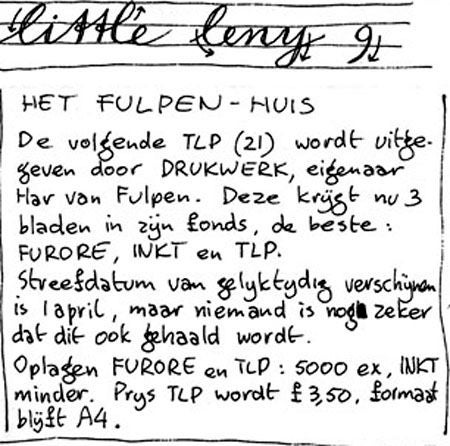 little leny 9
HET FULPEN-HUIS
De volgende TLP (21) wordt uitge-
geven door DRUKWERK, eigenaar
Har van Fulpen. Deze krijgt nu 3
bladen in zijn fonds, de beste:
FURORE, INKT en TLP.
Streefdatum van gelyktydig verschijnen
is 1 april, maar niemand is nog zeker
dat dit ook gehaald wordt.
Oplagen FURORE en TLP: 5000 ex, INKT
minder. Prys TLP wordt £ 3,50, formaat
blijft A4.